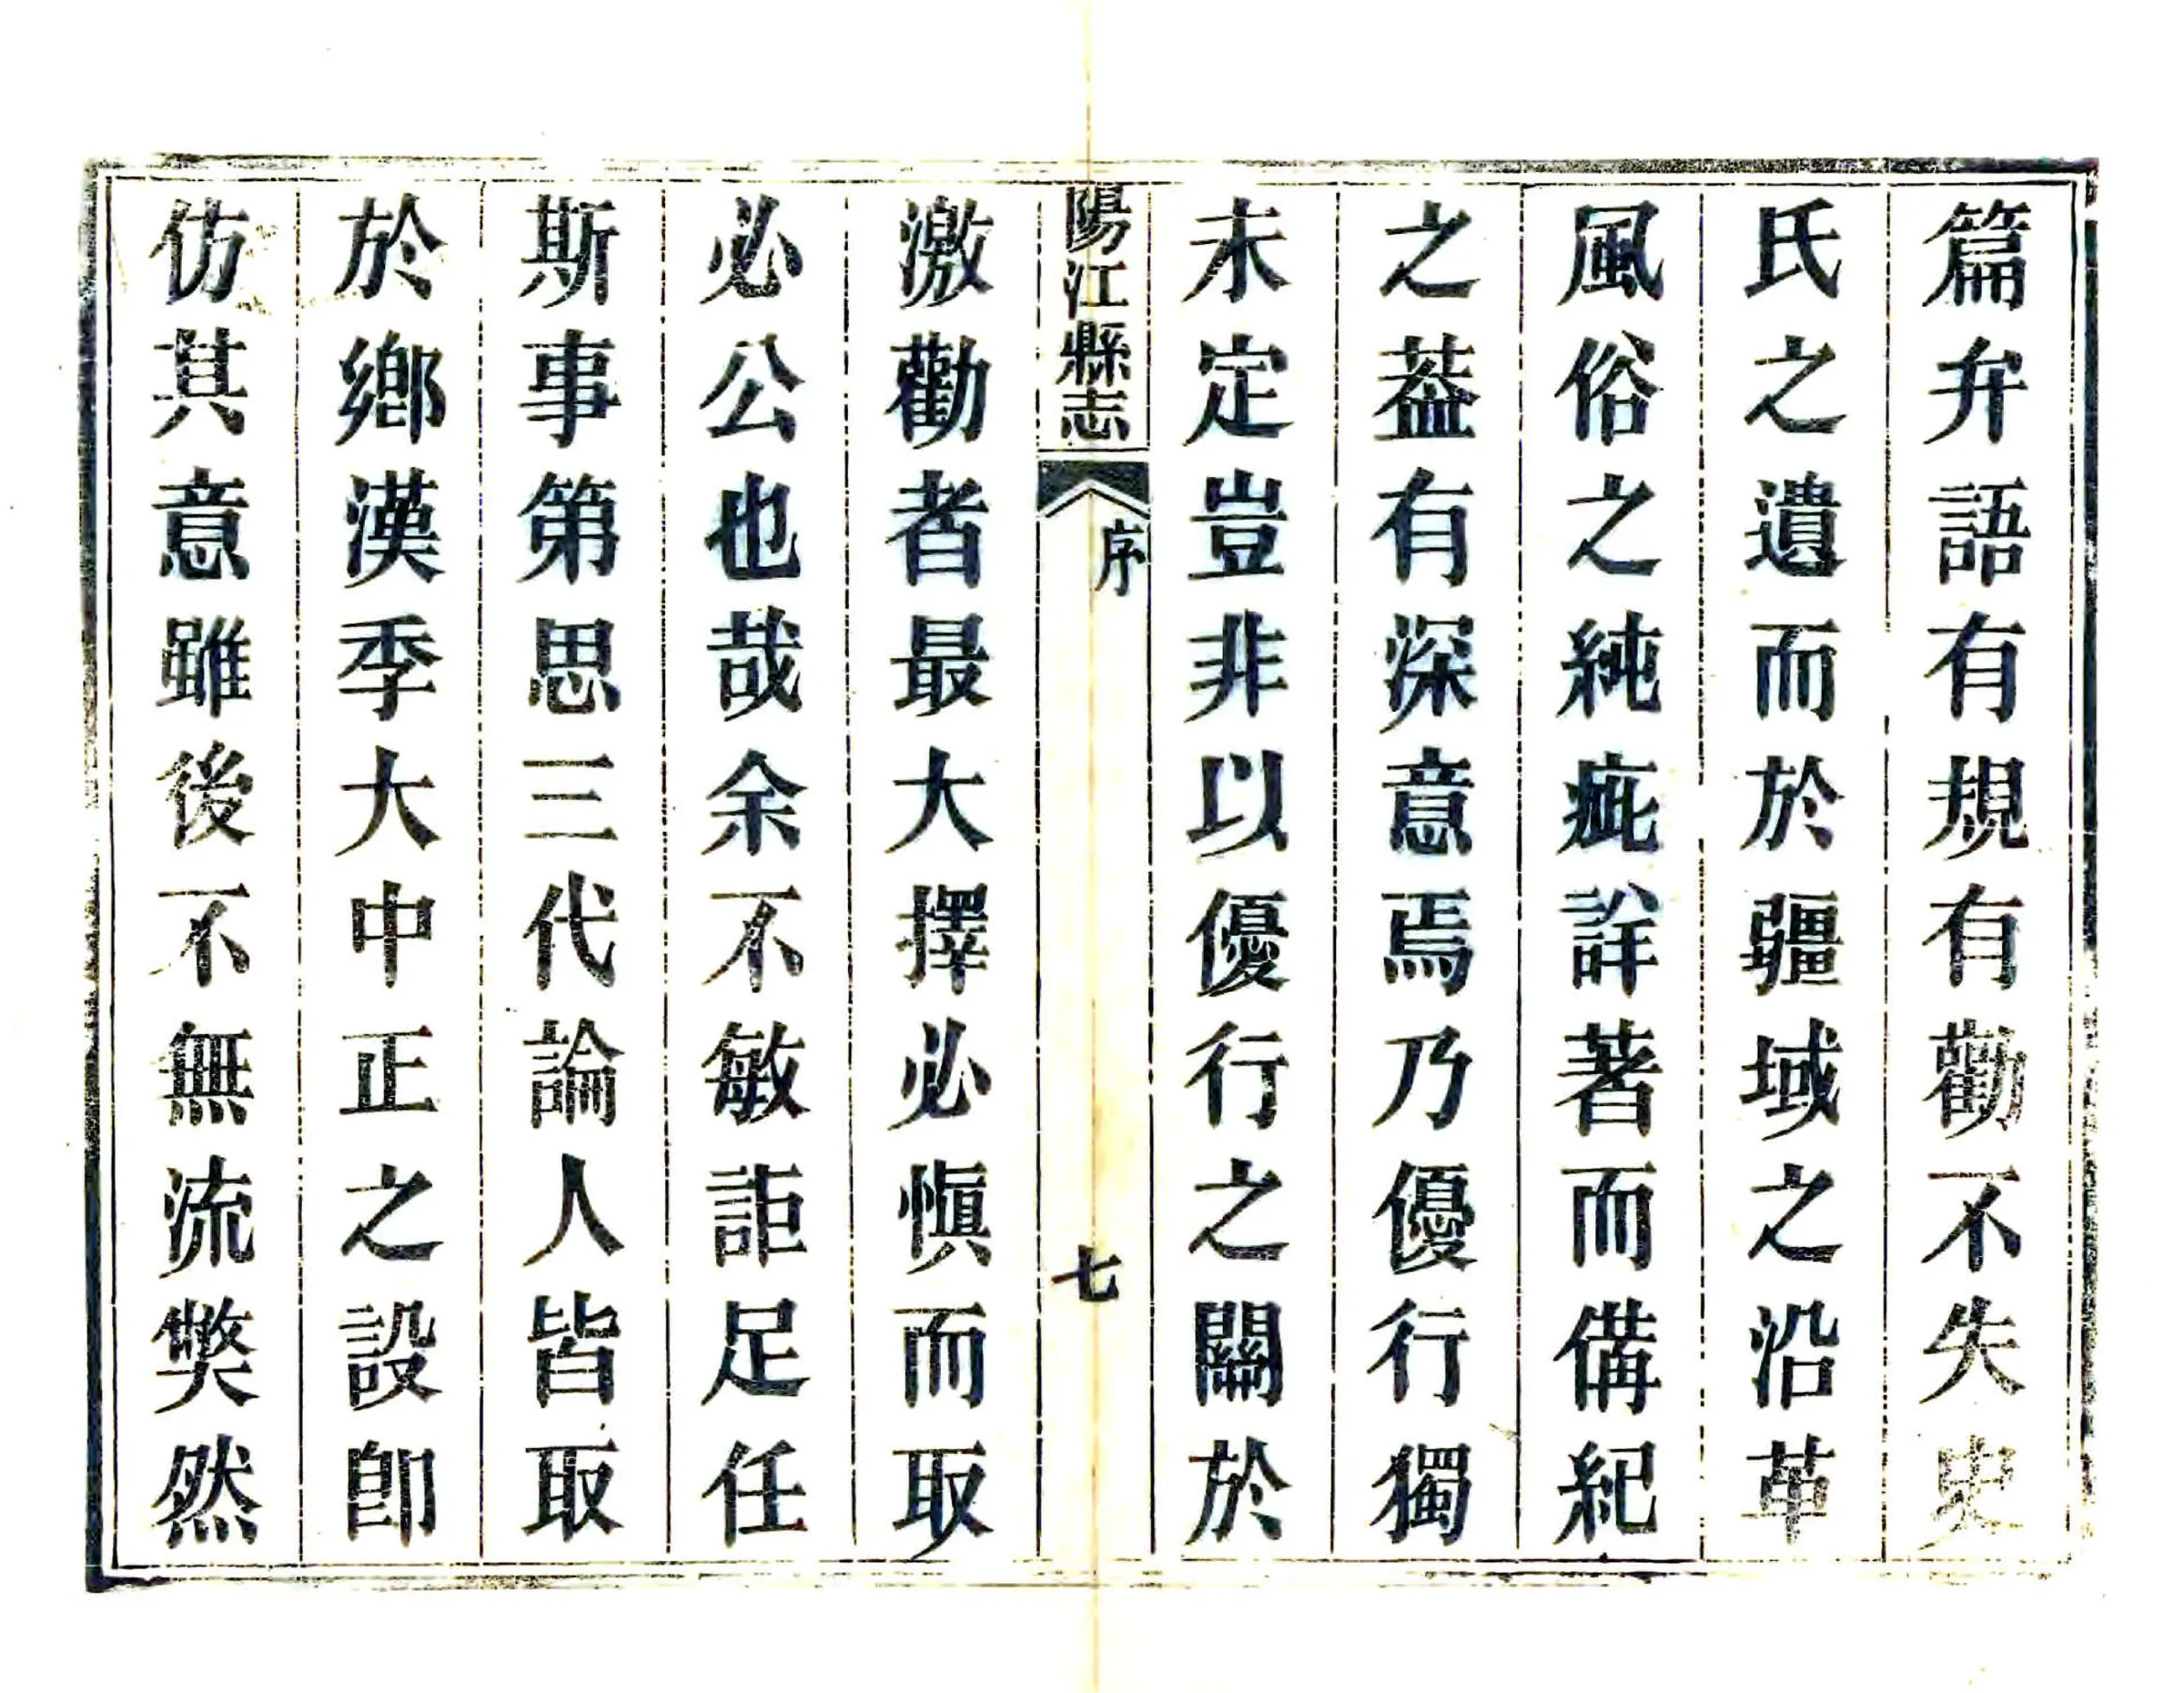 篇弁語有規有勸不失史
氏之遺而於疆域之沿革
風俗之純疵詳著而備紀
之葢有深意焉乃優行獨
未定豈非以優行之關於
陽江縣志
序
七
激勸者最大擇必愼而取
必公也哉余不敏詎足任
斯事第思三代論人皆取
於鄉漢季大中正之設卽
仿其意雖後不無流獘然